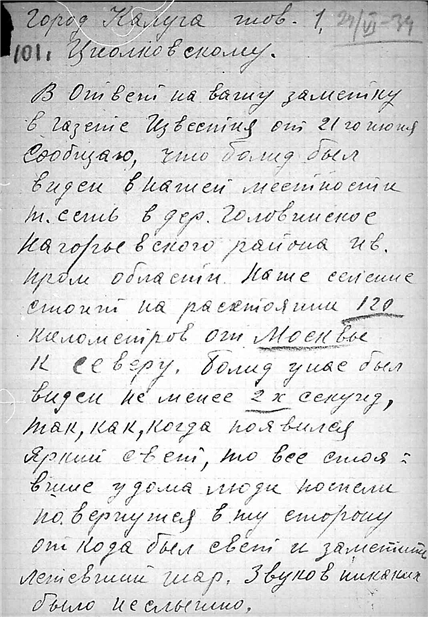 Город Калуга тов. 1, 24/VI-34
101. Циолковскому.
В Ответ на вашу заметку
в газете Известия от 21 го июня
Сообщаю, что болид был
виден в нашей местности
т. есть в дер. Головинское
Нагорьевского района Ив.
пром области. Наше селение
стоит на расстоянии 120
километров от Москвы
к северу. Болид у нас был
виден не менее 2х секунд,
так, как, когда появился
яркий свет, то все стоя=
вшие у дома люди поспели
повернутся в ту сторону
от кода был свет и заметить
летевший шар. Звуков никаких
было не слышно.